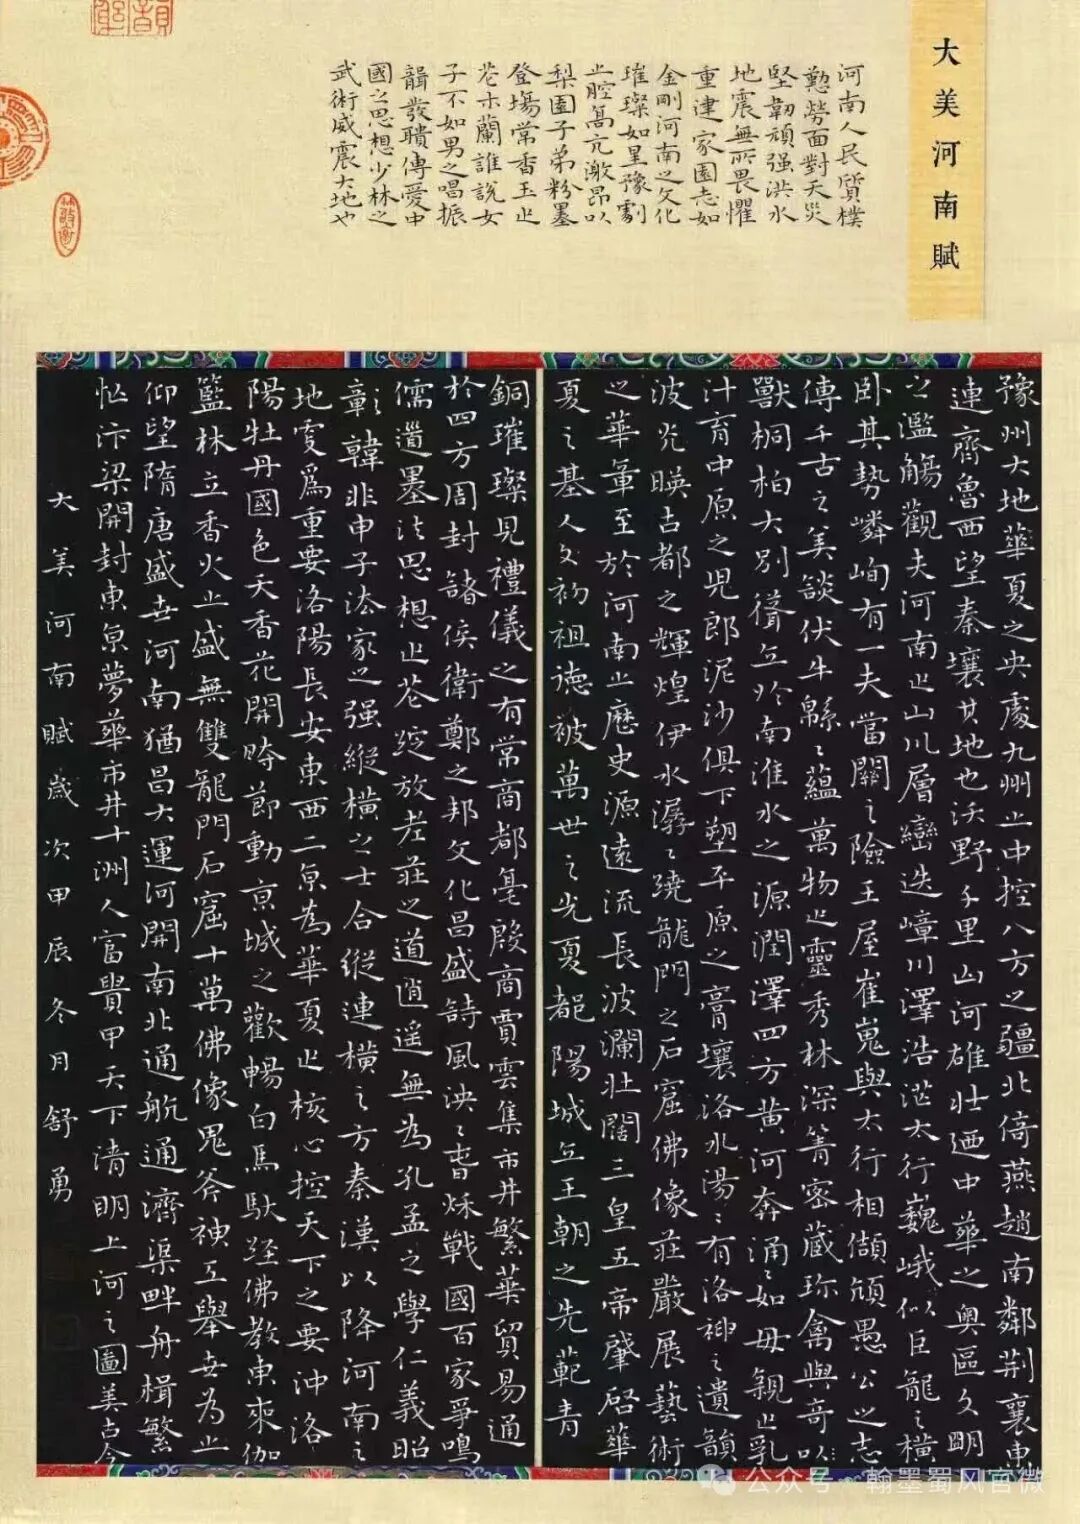 大美河南賦
河南人民質樸
勤勞面對天災
堅韌頑强洪水
地震無所畏懼
重建家園志如
金剛河南之文化
璀璨如星豫劇
之腔高亢激昂以
梨園子弟粉墨
登場常香玉之
花木蘭誰說女
子不如男之唱振
聾發聵傳愛中
國之思想少林之
武術威震大地也
豫州大地華夏之央處九州之中控八方之疆北倚燕趙南鄰荆襄東
連齊魯西望秦壤其地也沃野千里山河雄壯迺中華之奧區文明
之濫觴觀夫河南之山川層巒迭嶂川澤浩茫太行巍峨似巨龍之橫
卧其勢嶙峋有一夫當關之險王屋崔嵬與太行相擷頎愚公之志
傳千古之美談伏牛緜緜蘊萬物之靈秀林深箐密藏珍禽與奇
獸桐柏大別聳立於南淮水之源潤澤四方黃河奔涌如母親之乳
汁育中原之兒郎泥沙俱下塑平原之膏壤洛水湯湯有洛神之遺韻
波光暎古都之輝煌伊水潺潺繞龍門之石窟佛像莊嚴展藝術
之華章至於河南之歷史源遠流長波瀾壯闊三皇五帝肇啓華
夏之基人文初祖德被萬世之光夏都陽城立王朝之先範青
銅璀璨見禮儀之有常商都亳殷商賈雲集市井繁華貿易通
於四方周封諸侯衛鄭之邦文化昌盛詩風泱泱春秋戰國百家爭鳴
儒道墨法思想之花綻放老莊之道逍遥無為孔孟之學仁義昭
彰韓非申子法家之强縱橫之士合縱連橫之方秦漢以降河南之
地更為重要洛陽長安東西二京為華夏之核心控天下之要沖洛
陽牡丹國色天香花開時節動京城之歡暢白馬馱經佛教東來伽
籃林立香火之盛無雙龍門石窟十萬佛像鬼斧神工舉世為之
仰望隋唐盛世河南猶昌大運河開南北通航通濟渠畔舟楫繁
忙汴梁開封東京夢華市井十洲人富貴甲天下清明上河之圖美古今
大美河南賦歲次甲辰冬月舒勇
公众号·翰墨蜀风官微